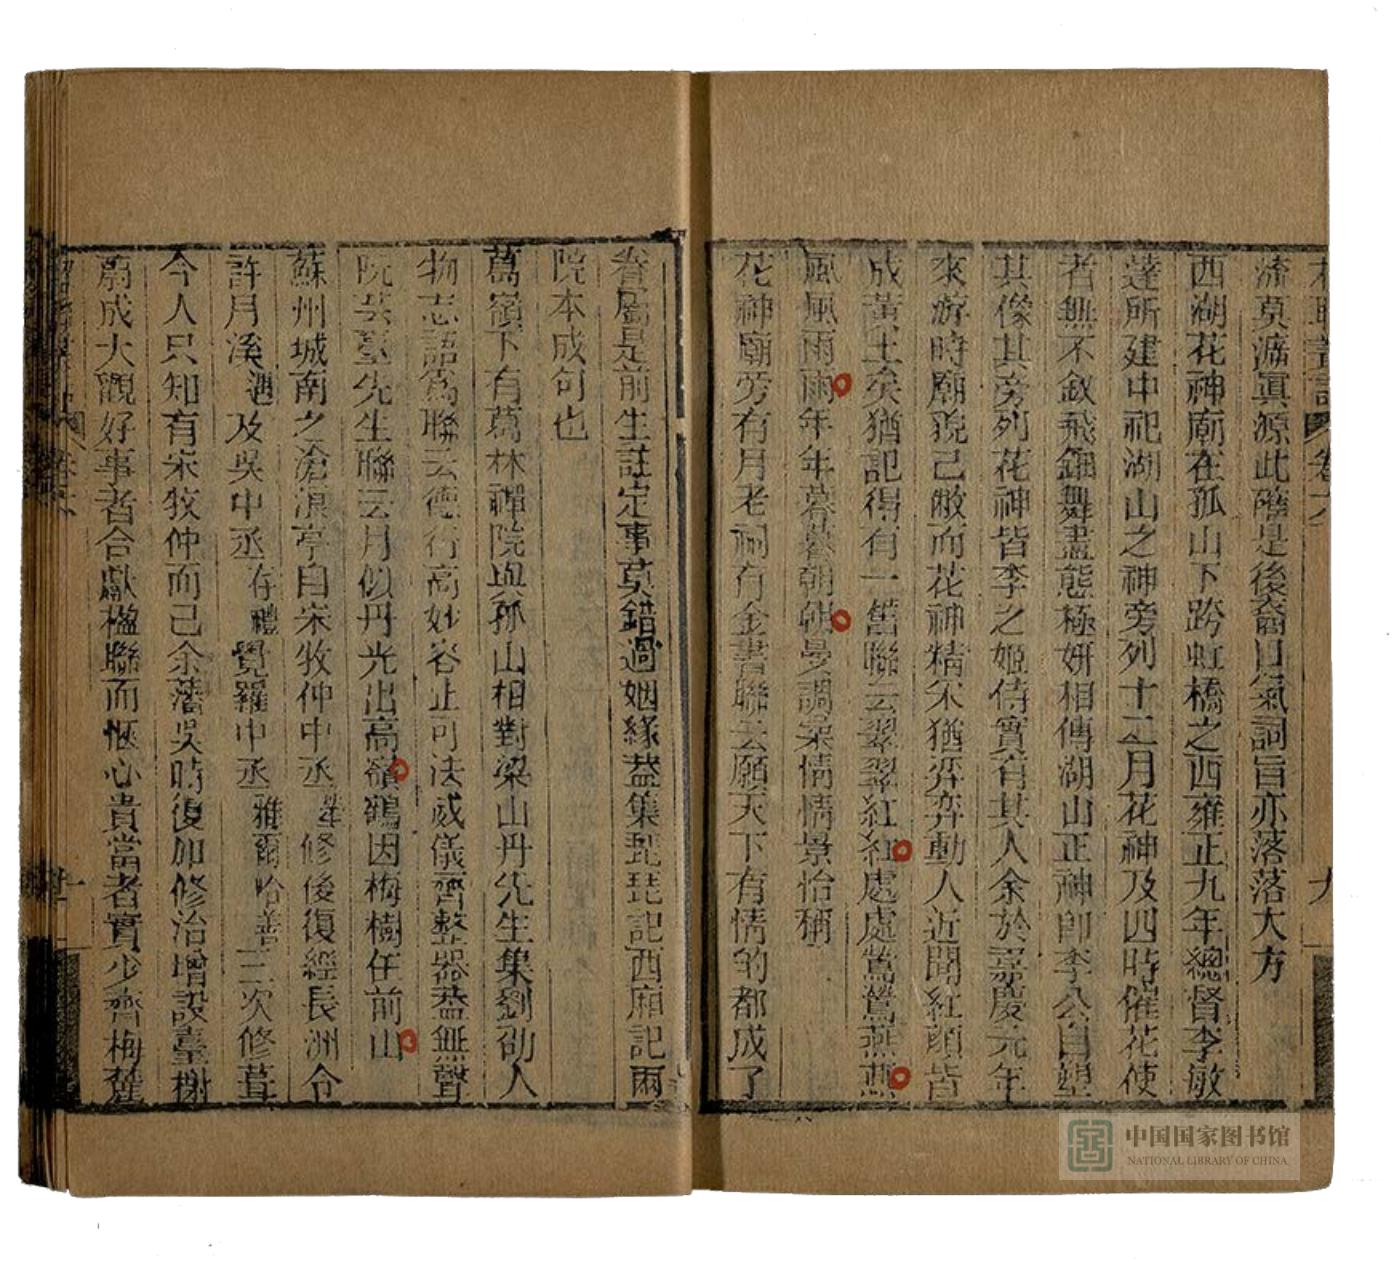 流莫溯眞源此隂是後裔口氣詞旨亦落落大方
西湖花神廟在孤山下跨虹橋之西雍正九年總督李敏
達所建中祀湖山之神旁列十二月花神及四時催花使
者無不敘飛鈿舞盡態極妍相傳湖山正神卽李公自塑
其像其旁列花神皆李之姬侍實有其人余於嘉慶元年
來游時廟貌已敝而花神精采猶弈弈動人近聞紅顔皆
成黃土矣猶記得有一舊聯云翠翠紅紅處處鶯鶯燕燕
風風雨雨年年暮暮朝朝曼調柔情情景恰稱
花神廟旁有月老祠有金書聯云願天下有情的都成了
眷屬是前生註定事莫錯過姻緣葢集琵琶記西廂記兩
院本成句也
葛嶺下有葛林禪院與孤山相對梁山丹先生集劉劭人
物志語爲聯云德行高妙容止可法威儀齊整器葢無聲
阮芸臺先生聯云月似丹光出高嶺鶴因梅樹住前山
蘇州城南之滄浪亭自宋牧仲中丞犖修後復經長洲令
許月溪遇及吳中丞存禮覺羅中丞雅爾哈善三次修葺
今人只知有宋牧仲而已余藩吳時復加修治增設臺榭
頗成大觀好事者合獻楹聯而愜心貴當者實少齊梅麓
中国国家图书馆
NATIONAL LIBRARY OF CHINA